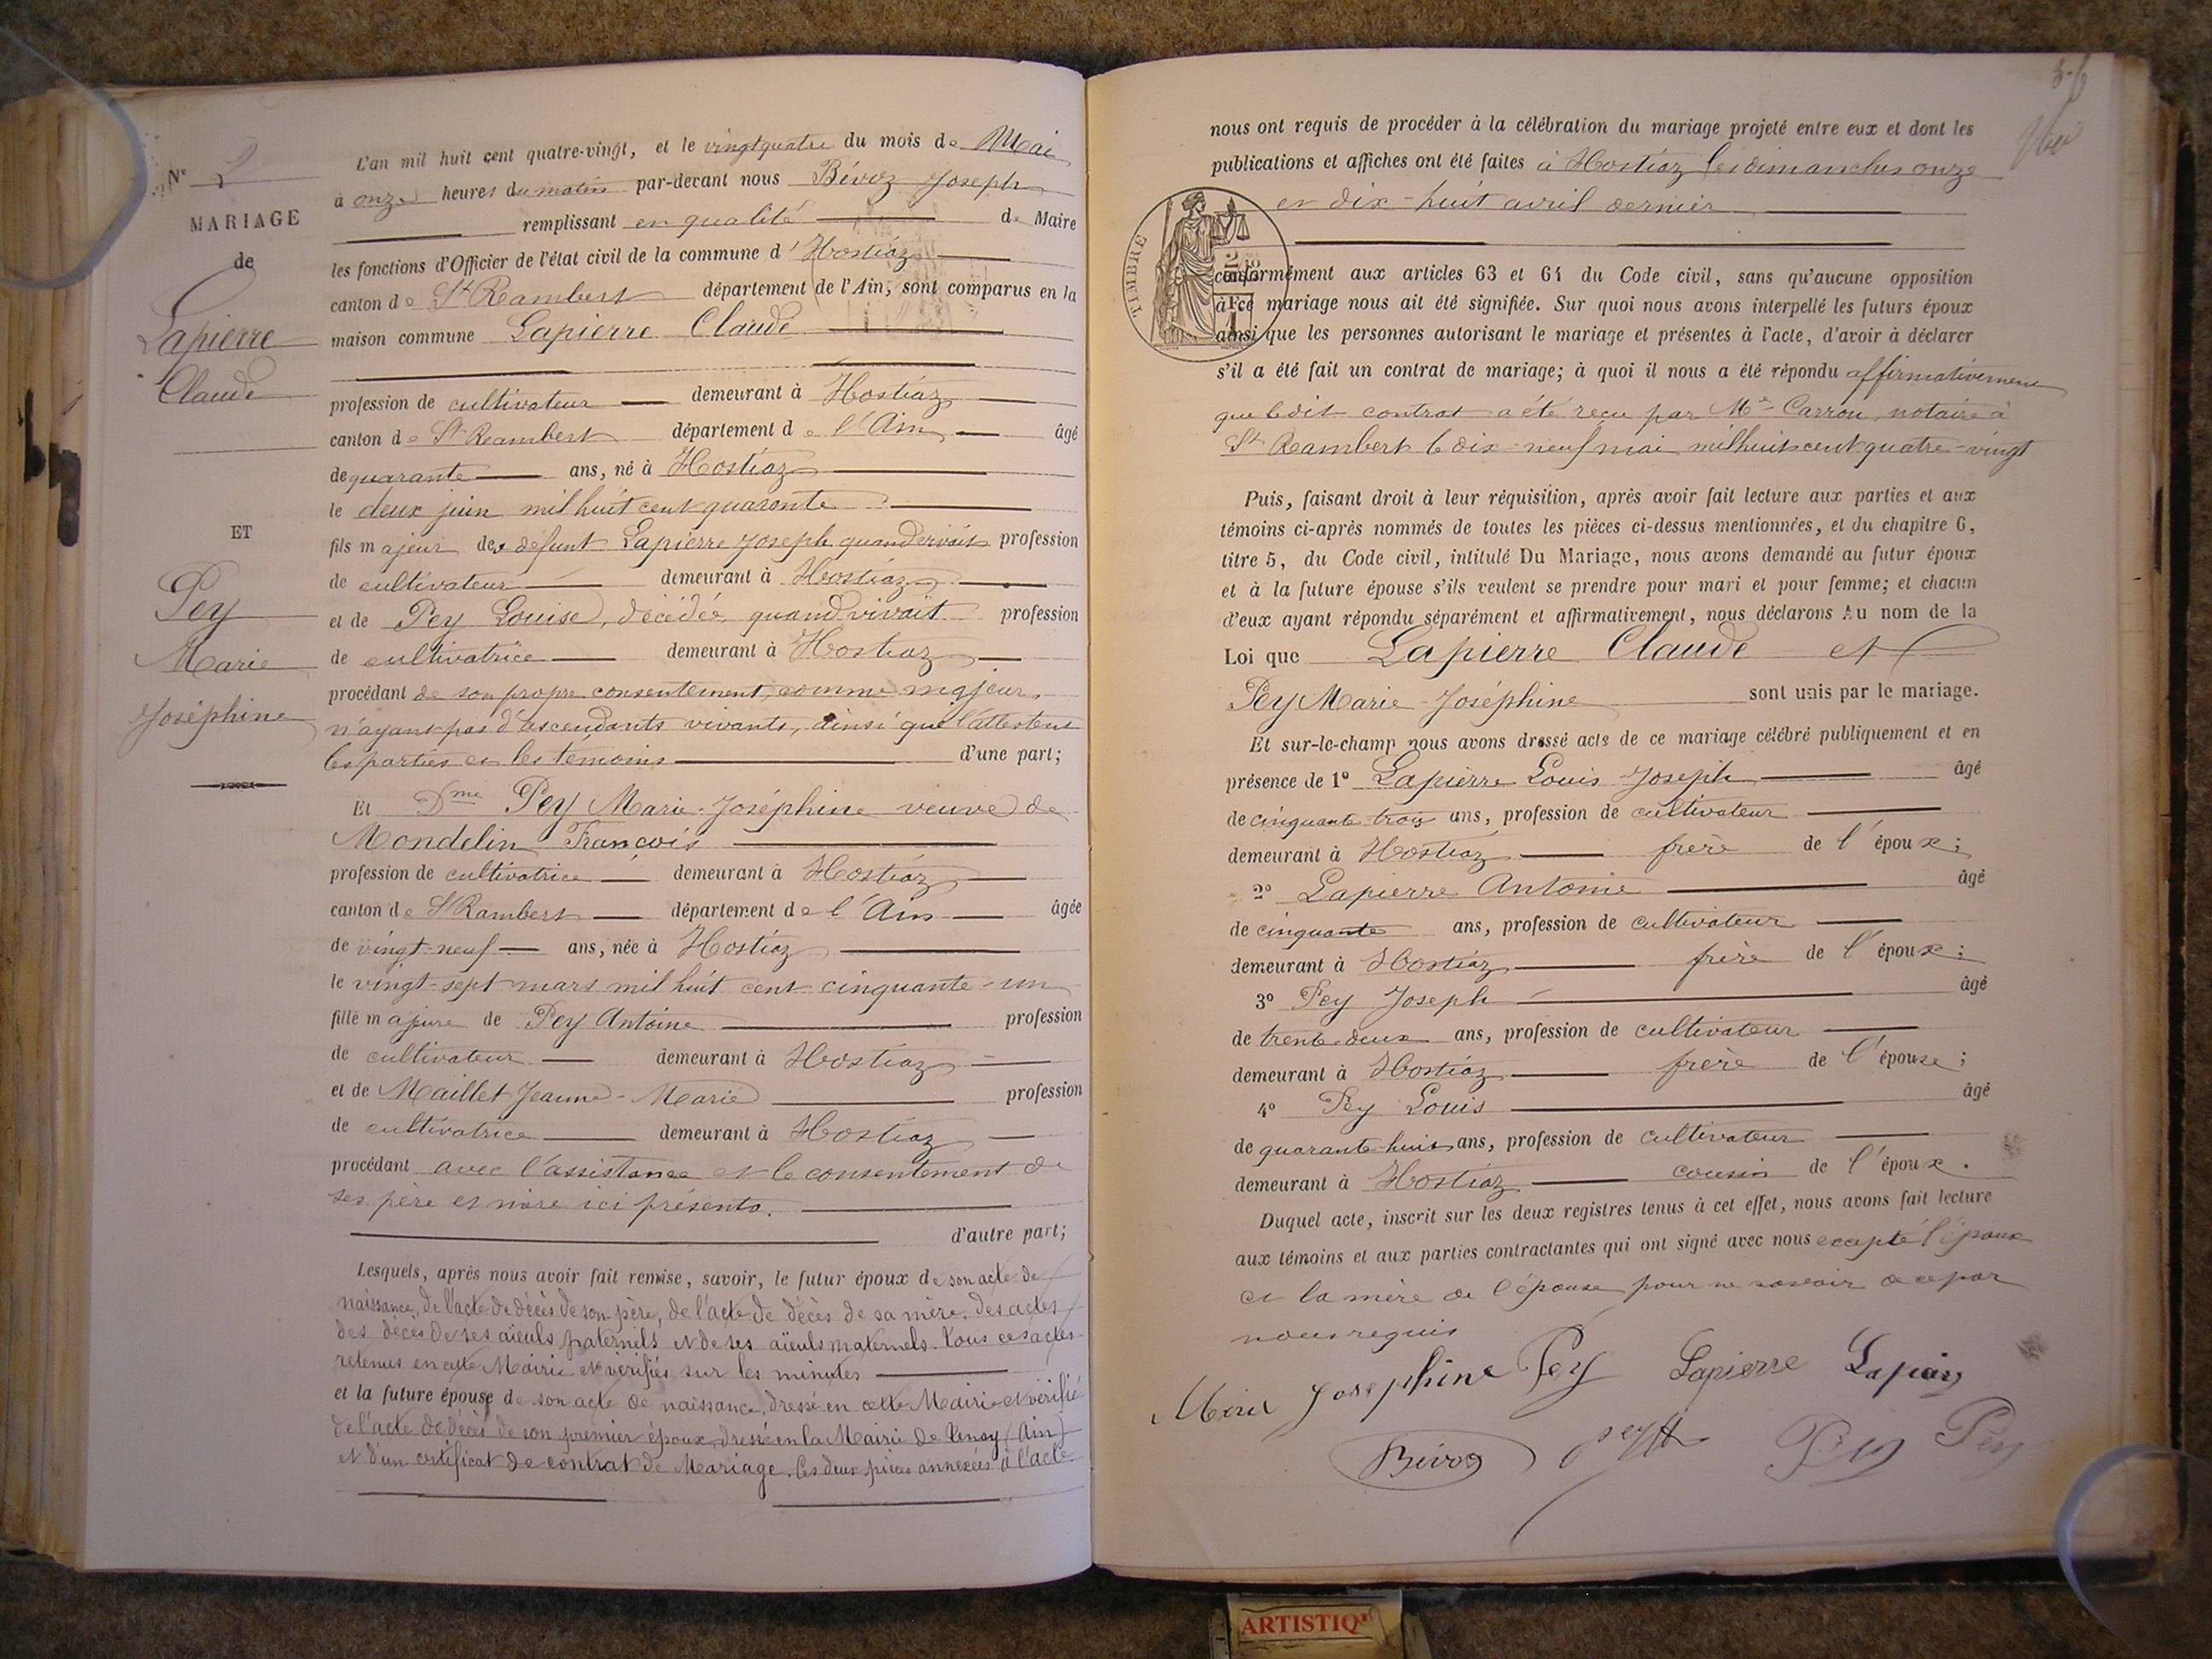 N° 2
MARIAGE
de
Lapierre
Claude
ET
Pey
Marie
Joséphine
L'an mil huit cent quatre-vingt, et le vingt quatre du mois de Mai
à onze heures du matin par-devant nous Bévoz Joseph
remplissant en qualité de Maire
les fonctions d'Officier de l'état civil de la commune d'Hostiaz
canton de St Rambert département de l'Ain, sont comparus en la
maison commune Lapierre Claude
profession de cultivateur demeurant à Hostiaz
canton de St Rambert département de l'Ain âgé
de quarante ans, né à Hostiaz
le deux juin mil huit cent quaronte
fils majeur de defunt Lapierre Joseph quand vivait profession
de cultivateur demeurant à Hostiaz
et de Pey Louise, décédée, quand vivait profession
de cultivatrice demeurant à Hostiaz
procédant de son propre consentement, comme majeur,
n'ayant pas d'ascendants vivants, ainsi que l'attestent
les parties et les témoins d'une part;
Et Dme Pey Marie-Joséphine veuve de
Mondelin François
profession de cultivatrice demeurant à Hostiaz
canton de St Rambert département de l'Ain âgée
de vingt-neuf ans, née à Hostiaz
le vingt-sept mars mil huit cent cinquante-un
fille majeure de Pey Antoine profession
de cultivateur demeurant à Hostiaz
et de Maillet Jeanne-Marie profession
de cultivatrice demeurant à Hostiaz
procédant avec l'assistance et le consentement de
ses père et mère ici présents.
d'autre part;
Lesquels, après nous avoir fait remise, savoir, le futur époux de son acte de
naissance, de l'acte de décès de son père, de l'acte de décès de sa mère, des actes
des décès de ses aïeuls paternels et de ses aïeuls maternels. Tous ces actes
retenus en cette Mairie et vérifiés sur les minutes
et la future épouse de son acte de naissance, dressé en cette Mairie et vérifié
de l'acte de décès de son premier époux, dressé en la Mairie de Tenay (Ain)
et d'un certificat de contrat de Mariage. Ces deux pièces annexées à l'acte
nous ont requis de procéder à la célébration du mariage projeté entre eux et dont les
publications et affiches ont été faites à Hostiaz les dimanches onze
et dix-huit avril dernier
TIMBRE
conformément aux articles 63 et 64 du Code civil, sans qu'aucune opposition
à ce mariage nous ait été signifiée. Sur quoi nous avons interpellé les futurs époux
ainsi que les personnes autorisant le mariage et présentes à l'acte, d'avoir à déclarer
s'il a été fait un contrat de mariage; à quoi il nous a été répondu affirmativement
que ledit contrat a été reçu par Me Carrou notaire à
St Rambert le dix-neuf mai mil huit cent quatre-vingt
Puis, faisant droit à leur réquisition, après avoir fait lecture aux parties et aux
témoins ci-après nommés de toutes les pièces ci-dessus mentionnées, et du chapitre 6,
titre 5, du Code civil, intitulé Du Mariage, nous avons demandé au futur époux
et à la future épouse s'ils veulent se prendre pour mari et pour femme; et chacun
d'eux ayant répondu séparément et affirmativement, nous déclarons Au nom de la
Loi que Lapierre Claude et
Pey Marie-Joséphine sont unis par le mariage.
Et sur-le-champ nous avons dressé acte de ce mariage célébré publiquement et en
présence de 1° Lapierre Louis Joseph âgé
de cinquante trois ans, profession de cultivateur
demeurant à Hostiaz frère de l'époux;
2° Lapierre Antoine âgé
de cinquante ans, profession de cultivateur
demeurant à Hostiaz frère de l'époux;
3° Pey Joseph âgé
de trente-deux ans, profession de cultivateur
demeurant à Hostiaz frère de l'épouse;
4° Pey Louis âgé
de quarante-huit ans, profession de cultivateur
demeurant à Hostiaz cousin de l'époux.
Duquel acte, inscrit sur les deux registres tenus à cet effet, nous avons fait lecture
aux témoins et aux parties contractantes qui ont signé avec nous excepté l'époux
et la mère de l'épouse pour ne savoir de ce par
nous requis
Marie Josephine Pey Lapierre Lapierre
Bévoz Pey Pey
ARTISTIQ